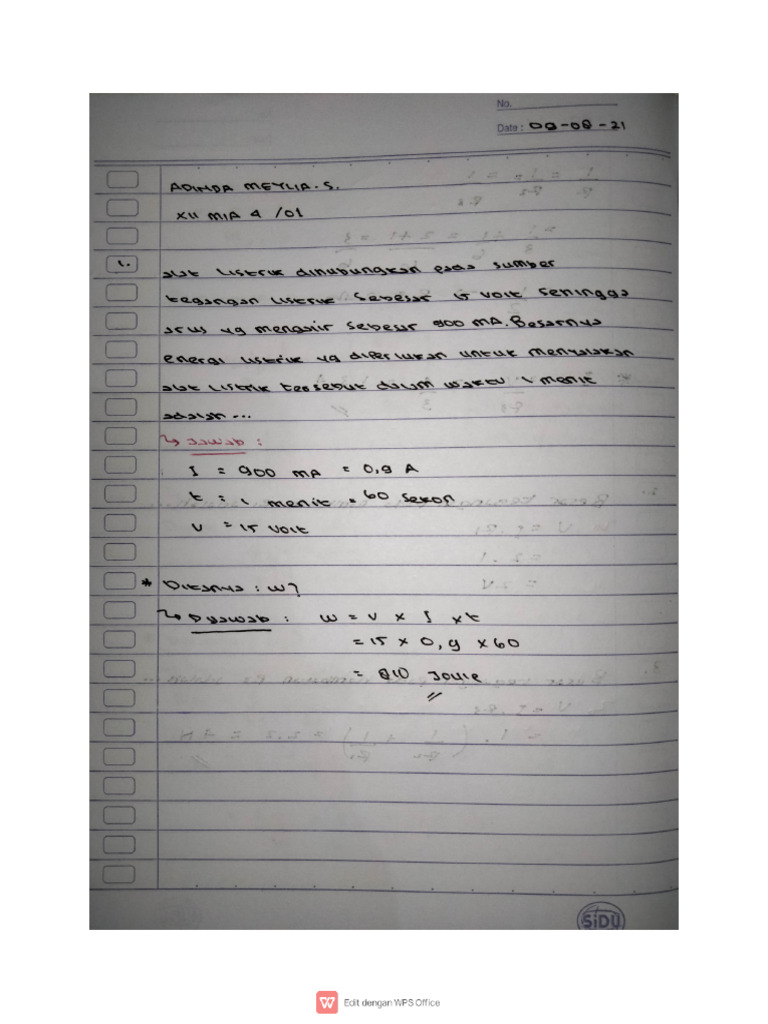 No.
Date : 09-08-21
ADINDA MEYLIA. S.
XII MIA 4 /01
1.
alat listrik dihubungkan pada sumber
tegangan listrik sebesar 15 volt sehingga
arus yg mengalir sebesar 900 mA. Besarnya
energi listrik yg diperlukan untuk menyalakan
alat listrik tersebut dalam waktu 1 menit
adalah ...
↳ Jawab :
I = 900 mA = 0,9 A
t = 1 menit = 60 sekon
V = 15 Volt
* Ditanya : W?
↳ Dijawab : W = V x I x t
= 15 x 0,9 x 60
= 810 Joule
SiDU
Edit dengan WPS Office